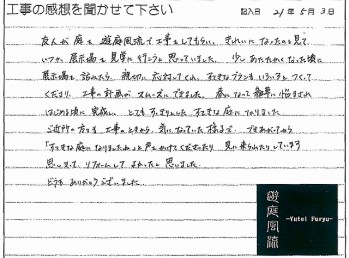 工事の感想を聞かせて下さい
記入日 21年5月3日
友人が庭を遊庭風流で工事をしてもらい、きれいになったのを見て
いつか展示場を見学に行こうと思っていました。少しあたたかくなった頃に
展示場を訪ねたら、親切に応対してくれ、すてきなプランをいろいろとつくって
くださり、工事の計画がスムーズにできました。春になって雑草に悩まされ
はじめる頃に完成し、とてもすっきりとしたすてきな庭になりました
ご近所の方も工事のときから、気になっていた様子で、できあがってから
「すてきな庭になりましたね」と声をかけてくださったり、見に来られたりしています
思い リフォームして よかったと思いました。
どうも ありがとうございました。
遊庭風流
-Yutei Furyu-